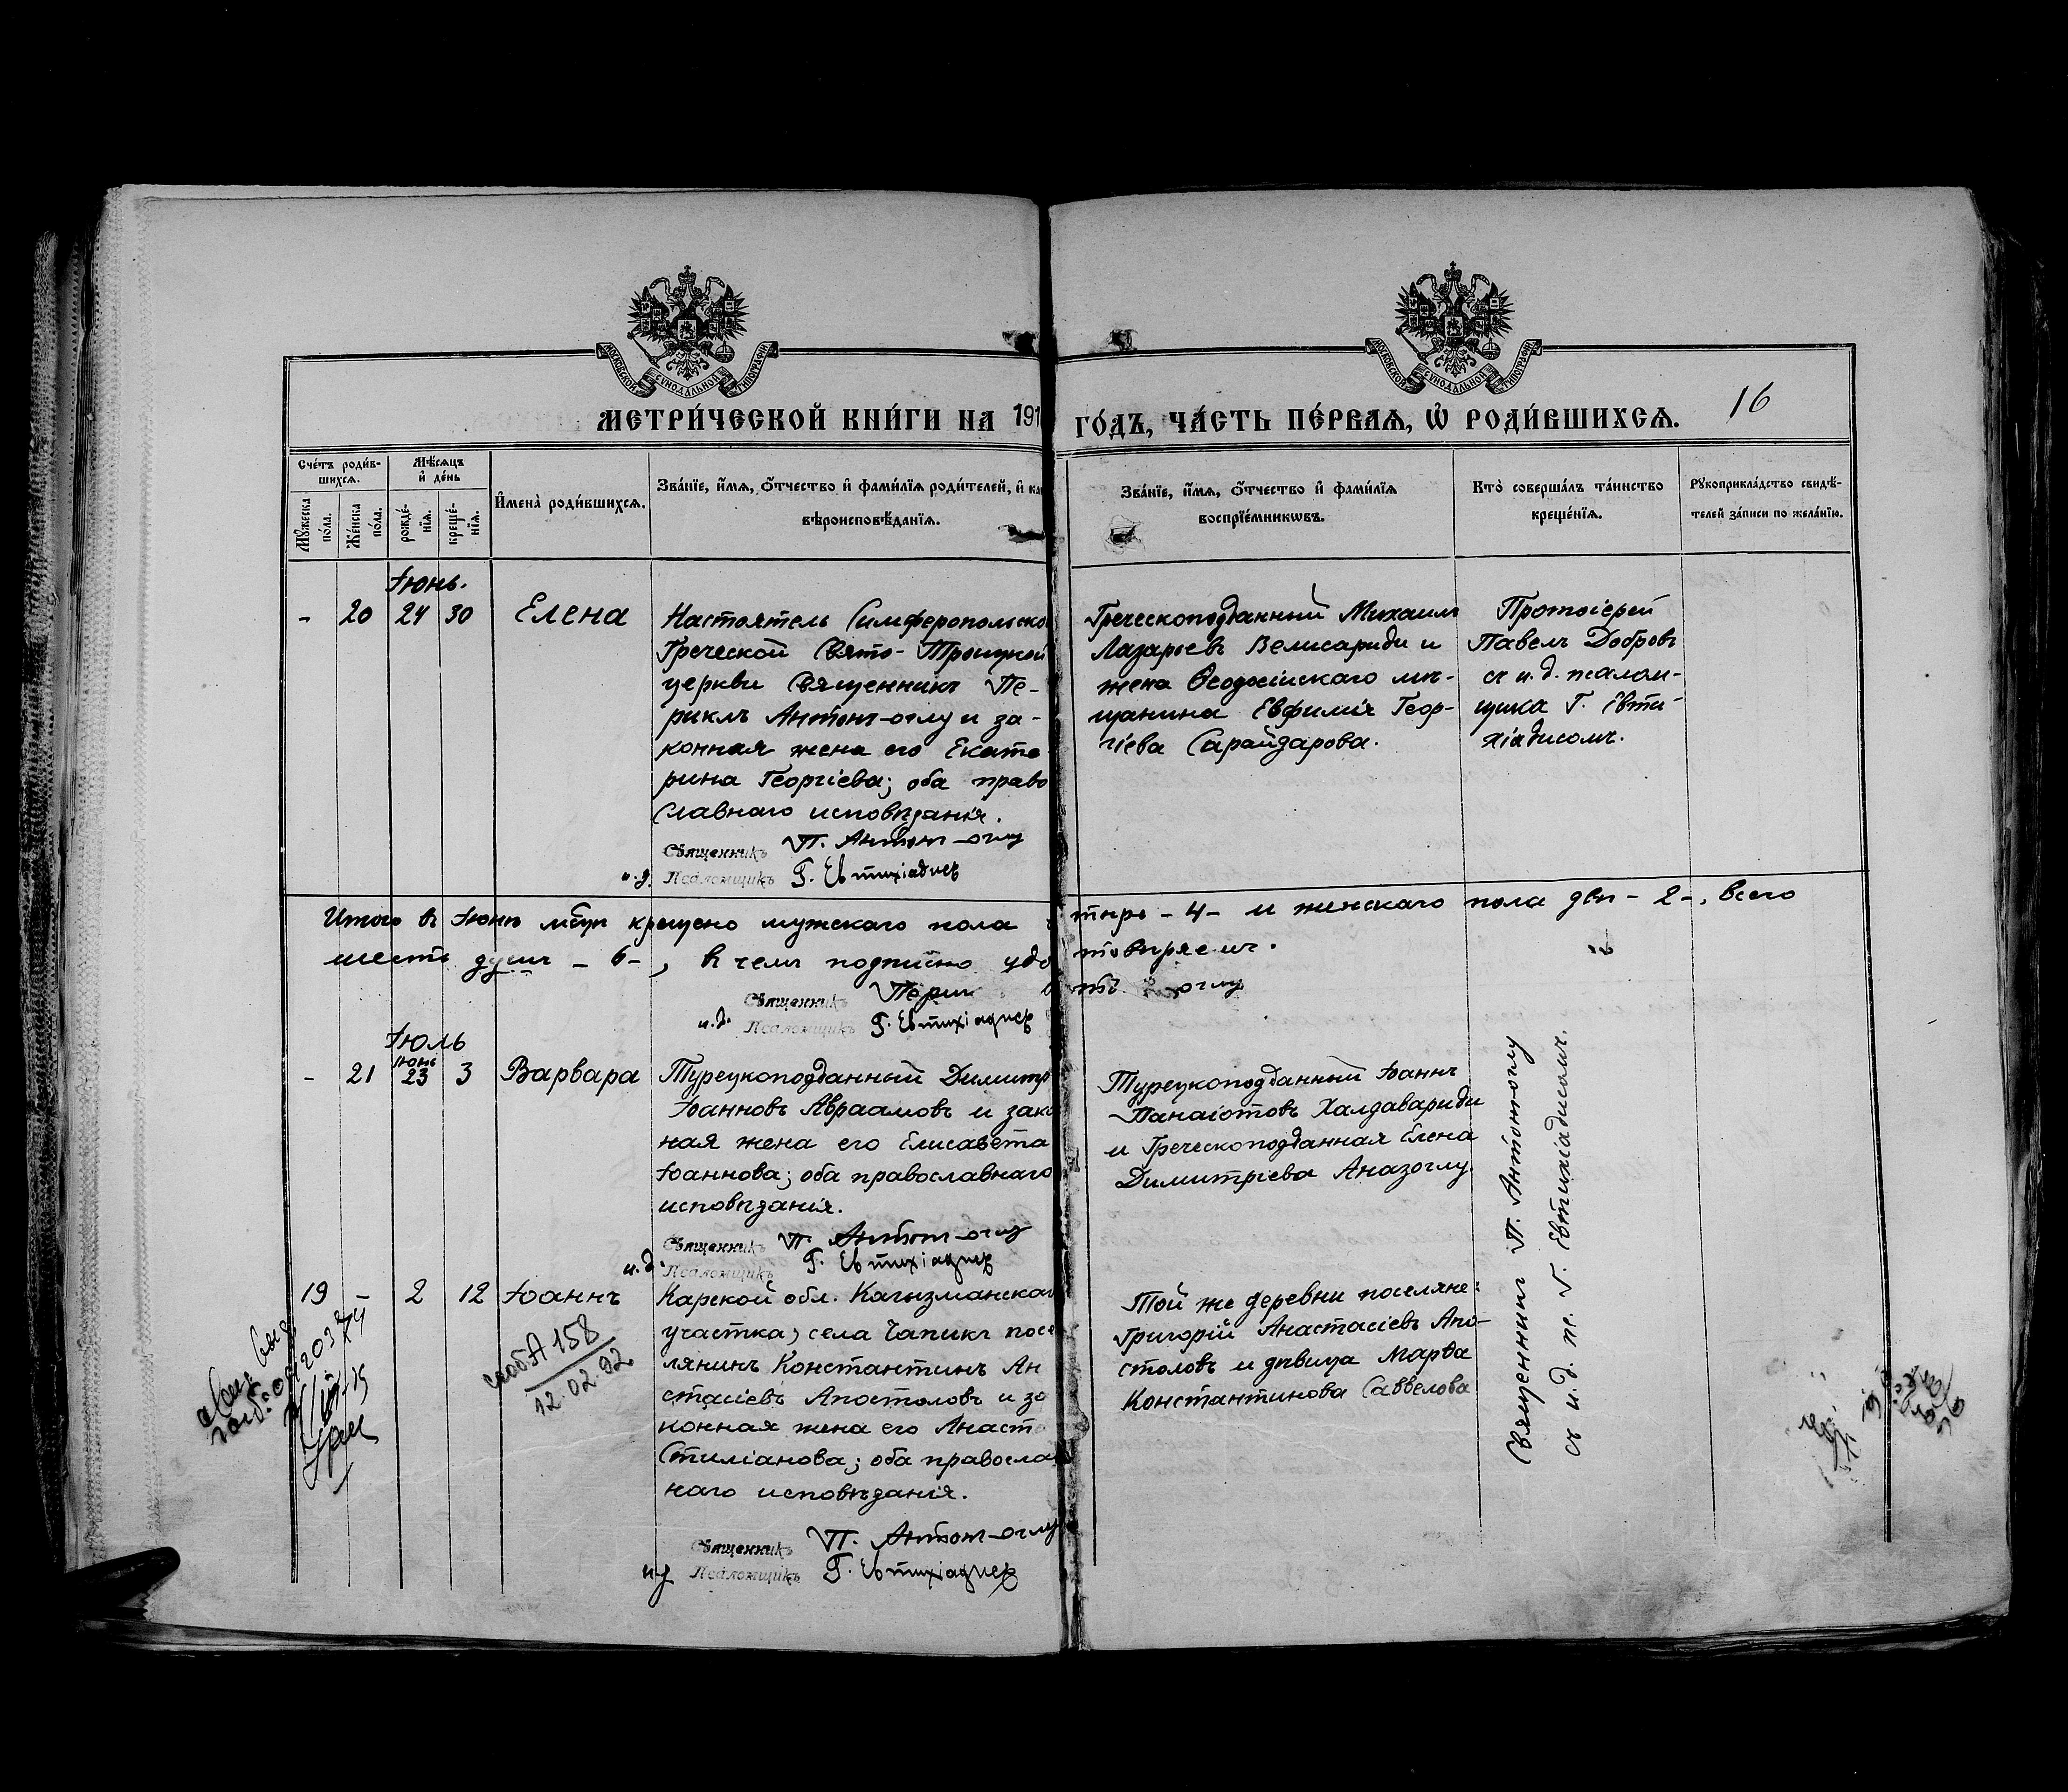 МОСКОВСКОЙ СѴНОДАЛЬНОЙ ТИПОГРАФІИ
МОСКОВСКОЙ СѴНОДАЛЬНОЙ ТИПОГРАФІИ
МЕТРИ́ЧЕСКОЙ КНИ́ГИ НА 191
ГО́ДЪ, ЧА́СТЬ ПЕ́РВАѦ, Ѽ РОДИ́ВШИХСѦ.
16
Сче́тъ роди́в-
шихсѧ.
Мꙋжеска по́ла.
Же́нска по́ла.
Мѣ́сѧцъ и҆ де́нь
рожде́-нїѧ.
креще́-нїѧ.
И҆мена̀ роди́вшихсѧ.
Зва́нїе, и҆́мѧ, ѻ҆́тчество и҆ фами́лїѧ роди́телей, и҆ ка
вѣроисповѣ́данїѧ.
Зва́нїе, и҆́мѧ, ѻ҆́тчество и҆ фами́лїѧ
воспрїе́мникѡвъ.
Кто̀ соверша́лъ та́инство
креще́нїѧ.
Рꙋкоприкла́дство свидѣ́-
телей за́писи по жела́нїю.
Іюнь.
- 20 24 30 Елена
Настоятель Симферопольско
Греческой Свято-Троицкой
церкви Священникъ Пе-
риклъ Антонъ-оглу и за-
конная жена его Екате
рина Георгіева; оба право
славнаго исповѣданія.
Священникъ П. Антонъ-оглу
и.д. Псаломщикъ Г. Евтихіадисъ
Греческоподданный Михаилъ
Лазаревъ Велисариди и
жена Ѳеодосійскаго мѣ-
щанина Евфимія Геор-
гіева Сарайдарова.
Протоіерей
Павелъ Добровъ
съ и.д. псалом-
щика Г. Евти-
хіадисомъ.
Итого въ Іюнѣ м-цѣ крещено мужскаго пола
тыре - 4 - и женскаго пола двѣ - 2 -, всего
шесть душъ - 6 -, въ чемъ подписью удо
товѣряемъ.
Священникъ Перик
оглу
и.д. Псаломщикъ Г. Евтихіадисъ
Іюль
- 21 Іюнь 23 3 Варвара
Турецкоподданный Димитр
Іоанновъ Авраамовъ и зако
ная жена его Елисавета
Іоаннова; оба православнаго
исповѣданія.
Священникъ П. Антонъ-оглу
и.д. Псаломщикъ Г. Евтихіадисъ
Турецкоподданный Іоаннъ
Панаіотовъ Халдавариди
и Греческоподданная Елена
Димитріева Аназоглу.
19 - 2 12 Іоаннъ
Карской обл. Кагызманскаг
участка, села Чапикъ посе
лянинъ Константинъ Ан
стасіевъ Апостоловъ и за
конная жена его Анаст
Стиліанова; оба правосла
наго исповѣданія.
Священникъ П. Антонъ-оглу
и.д. Псаломщикъ Г. Евтихіадисъ
Той же деревни поселяне:
Григорій Анастасіевъ Апо-
столовъ и дѣвица Марѳа
Константинова Саввелова
Священникъ П. Антонъ-оглу
съ и.д. пс. Г. Евтихіадисомъ.
А 158
12.02.92